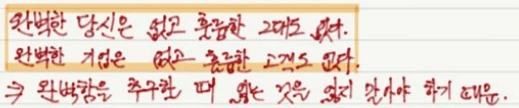 완벽한 당신은 없고 훌륭한 그대도 없다.
완벽한 기업은 없고 훌륭한 고객도 없다.
⇒ 완벽함을 추구할 때 잃는 것을 잊지 말아야 하기 때문.